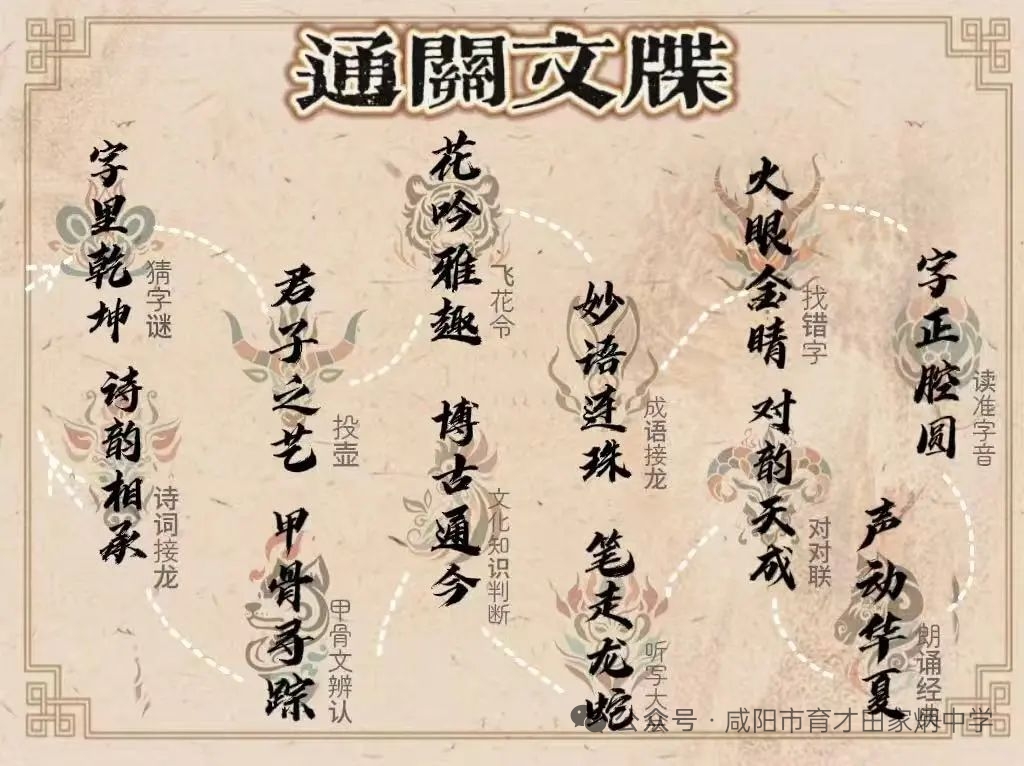 通關文牒
字里乾坤
猜字谜
君子之艺
投壶
花吟雅趣
飞花令
妙语连珠
成语接龙
火眼金睛
找错字
字正腔圆
读准字音
诗韵相承
诗词接龙
甲骨寻踪
甲骨文辨认
博古通今
文化知识判断
笔走龙蛇
听写大
对韵天成
对对联
声动华夏
朗诵经典
公众号·咸阳市育才田家炳中学